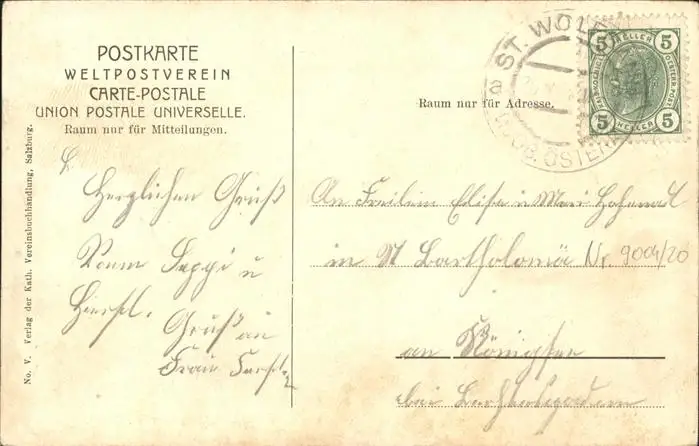 POSTKARTE
WELTPOSTVEREIN
CARTE-POSTALE
UNION POSTALE UNIVERSELLE.
Raum nur für Mitteilungen.
No. V. Verlag der Kath. Vereinsbuchhandlung, Salzburg.
Herzlichen Gruß
Seppi u
Gruß an
Frau
Raum nur für Adresse.
ST. WOLF
OB. ÖSTER
5 HELLER 5
5 HELLER 5
An Freilein Elise u Mari
in St Bartholomä Nr. 9004/20
an Königsee
bei Berchtesgadern